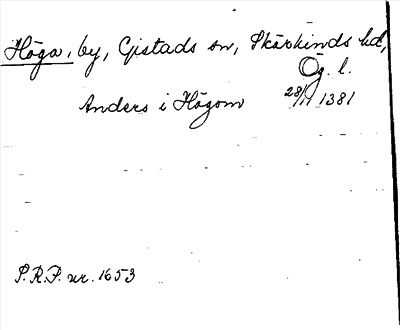 Höga, by, Gistads sn, Skärkinds hd,
Ög. l.
Anders i Högom 28/11 1381
S.R.P. nr. 1653